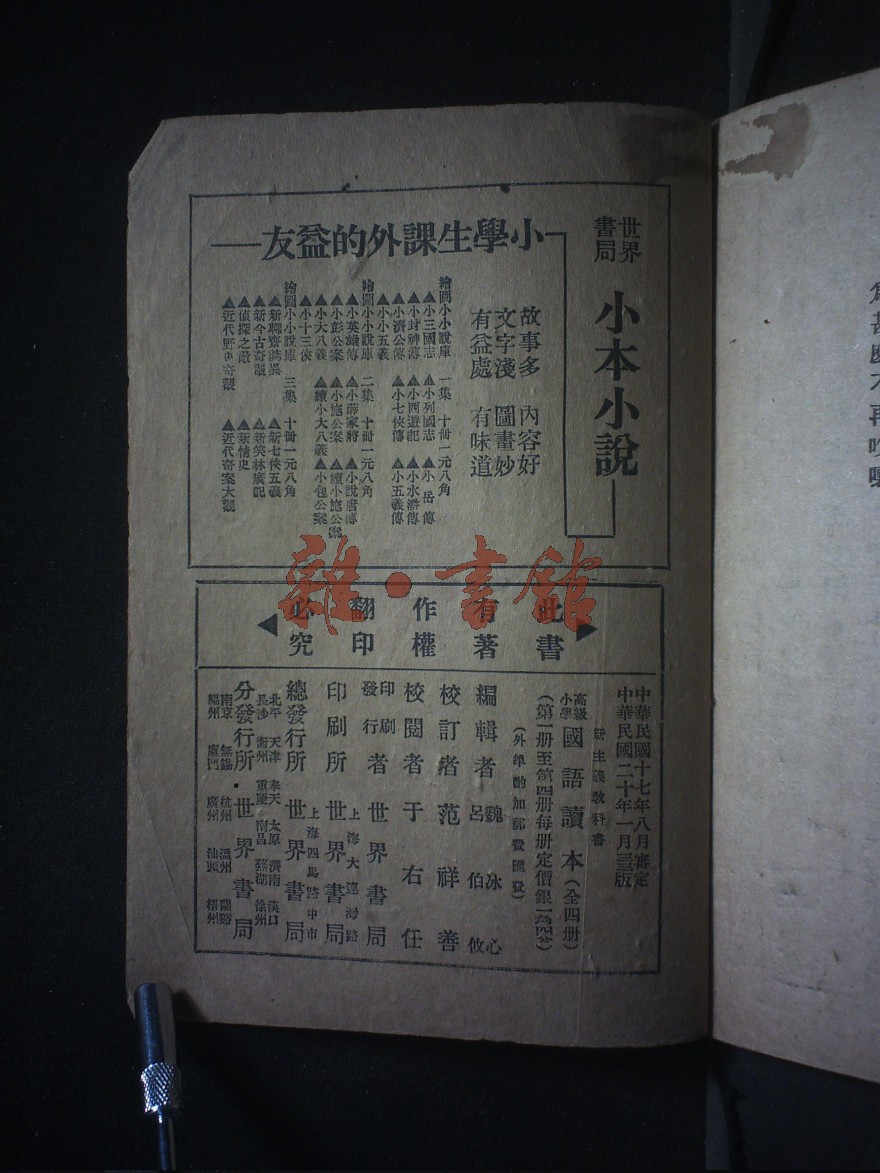 世界書局
小本小說
小學生課外的益友
故事多　內容好
文字淺　圖畫妙
有益處　有味道
繪圖小小說庫　一集　十冊一元八角
▲小三國志　▲小列國志　▲小岳傳
▲小封神傳　▲小西遊記　▲小水滸傳
▲小濟公傳　▲小七俠傳　▲小五義傳
▲小小五義
繪圖小小說庫　二集　十冊一元八角
▲小英烈傳　▲小薛家將　▲小說唐傳
▲小彭公案　▲小施公案　▲續小施公案
▲小大八義　▲續小大八義　▲小包公案
▲小十三俠
繪圖小小說庫　三集　十冊一元八角
▲新聊齋誌異　▲新七俠五義
▲新今古奇觀　▲新笑林廣記
▲偵探之敵　▲新情史
▲近代野史奇觀　▲近代奇案大觀
此書有著作權翻印必究
中華民國十七年八月審定
中華民國二十年一月三版
新主義教科書
高級小學國語讀本（全四册）
（第一册至第四册每册定價銀一角四分）
（外埠酌加郵費匯費）
編輯者　魏冰心　呂伯攸
校訂者　范祥善
校閱者　于右任
印刷發行者　世界書局
上海大連灣路
印刷所　世界書局
上海四馬路中市
總發行所　世界書局
北平　天津　奉天　太原　濟南　漢口
長沙　衡州　重慶　南昌　蕪湖　徐州
分發行所　世界書局
南京　無錫　杭州　溫州　蘭谿
福州　廈門　廣州　汕頭　梧州
為甚麼不再吹
雜·書館